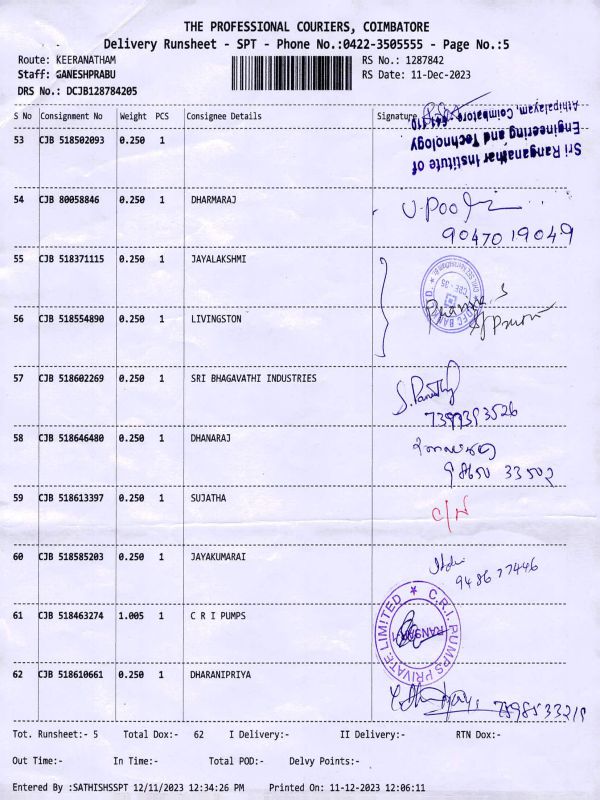 THE PROFESSIONAL COURIERS, COIMBATORE
Delivery Runsheet - SPT - Phone No.:0422-3505555 - Page No.:5
Route: KEERANATHAM RS No.: 1287842
Staff: GANESHPRABU RS Date: 11-Dec-2023
DRS No.: DCJB128784205
S No Consignment No Weight PCS Consignee Details Signature
Sri Ranganathar Institute of
Engineering and Technology
Athipalayam, Coimbatore
53 CJB 518502093 0.250 1
54 CJB 80058846 0.250 1 DHARMARAJ
9047019049
55 CJB 518371115 0.250 1 JAYALAKSHMI
56 CJB 518554890 0.250 1 LIVINGSTON
57 CJB 518602269 0.250 1 SRI BHAGAVATHI INDUSTRIES
58 CJB 518646480 0.250 1 DHANARAJ
98650 33502
59 CJB 518613397 0.250 1 SUJATHA
C/N
60 CJB 518585203 0.250 1 JAYAKUMARAI
948677446
61 CJB 518463274 1.005 1 C R I PUMPS
C.R.I. PUMPS PRIVATE LIMITED
62 CJB 518610661 0.250 1 DHARANIPRIYA
Tot. Runsheet:- 5 Total Dox:- 62 I Delivery:- II Delivery:- RTN Dox:-
Out Time:- In Time:- Total POD:- Delvy Points:-
Entered By :SATHISHSSPT 12/11/2023 12:34:26 PM Printed On: 11-12-2023 12:06:11